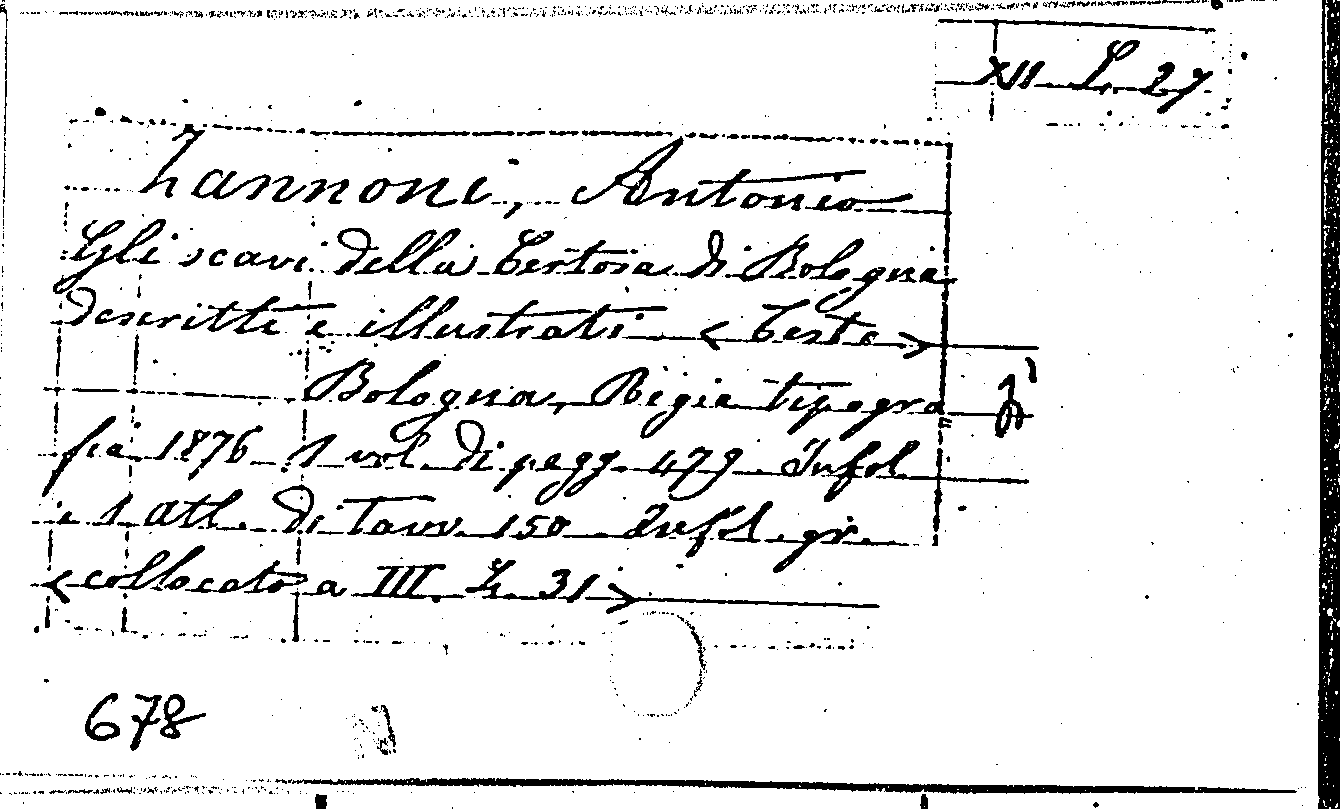 XII. L. 27
Zannoni, Antonio
Gli scavi della Certosa di Bologna
descritti e illustrati < Testo >
Bologna, Regia tipogra
fia 1876 1 vol. di pagg. 479. Infol
e 1 atl. di Tavv. 150 Infol. gr.
< collocato a III. 31 >
678
N